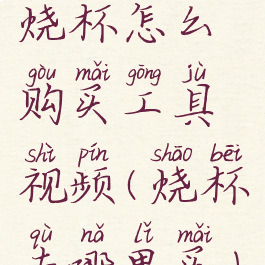 烧杯怎么
gòu mǎi gōng jù
购买工具
shì pín shāo bēi
视频(烧杯
qù nǎ lǐ mǎi
去哪里买)